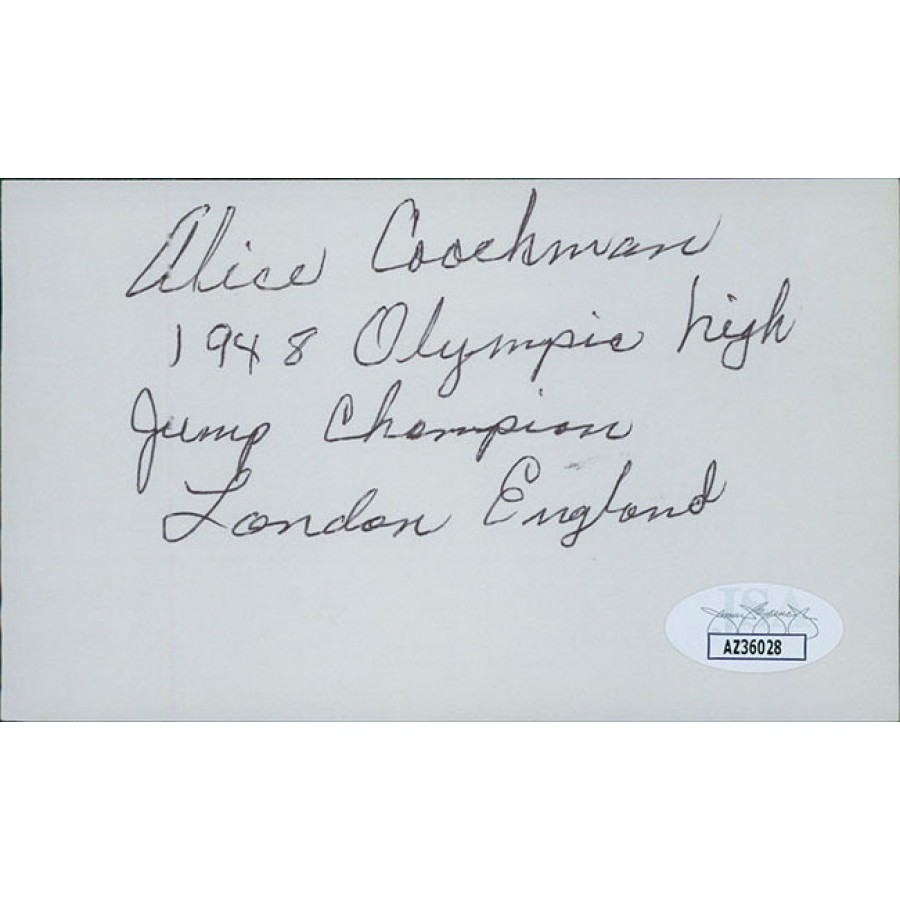 Alice Coachman
1948 Olympic high
Jump Champion
London England
JSA
AZ36028